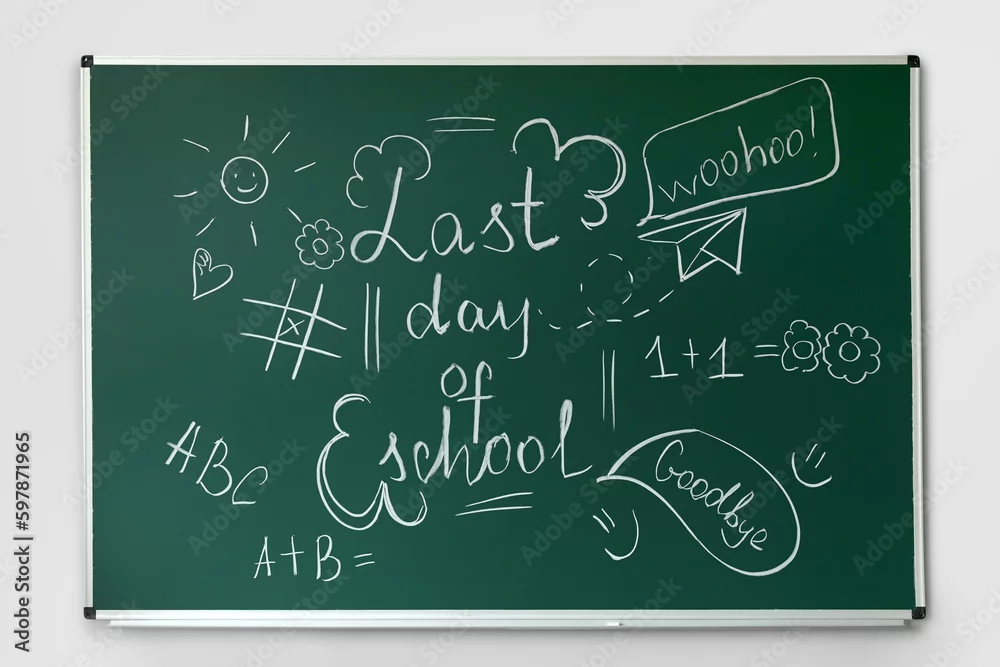 woohoo!
Last
day
of
school
1+1=
ABC
Goodbye
A+B=
Adobe Stock | #597871965